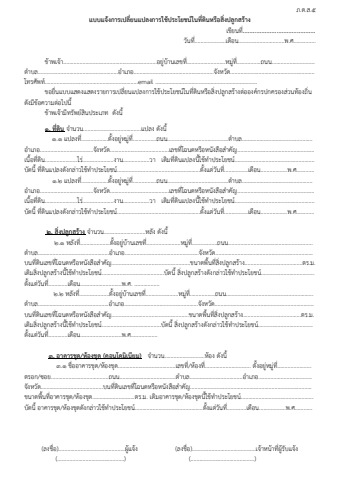 ภ.ด.ส.๕
แบบแจ้งการเปลี่ยนแปลงการใช้ประโยชน์ในที่ดินหรือสิ่งปลูกสร้าง
เขียนที่
วันที่ เดือน พ.ศ.
ข้าพเจ้า อยู่บ้านเลขที่ หมู่ที่ ถนน
ตำบล อำเภอ จังหวัด
โทรศัพท์ email
ขอยื่นแบบแสดงแสดงรายการเปลี่ยนแปลงการใช้ประโยชน์ในที่ดินหรือสิ่งปลูกสร้างต่อองค์กรปกครองส่วนท้องถิ่น
ดังมีข้อความต่อไปนี้
ข้าพเจ้ามีทรัพย์สินประเภท ดังนี้
๑. ที่ดิน จำนวน แปลง ดังนี้
๑.๑ แปลงที่ ตั้งอยู่หมู่ที่ ถนน ตำบล
อำเภอ จังหวัด เลขที่โฉนดหรือหนังสือสำคัญ
เนื้อที่ดิน ไร่ งาน วา เดิมที่ดินแปลงนี้ใช้ทำประโยชน์
บัดนี้ ที่ดินแปลงดังกล่าวใช้ทำประโยชน์ ตั้งแต่วันที่ เดือน พ.ศ.
๑.๒ แปลงที่ ตั้งอยู่หมู่ที่ ถนน ตำบล
อำเภอ จังหวัด เลขที่โฉนดหรือหนังสือสำคัญ
เนื้อที่ดิน ไร่ งาน วา เดิมที่ดินแปลงนี้ใช้ทำประโยชน์
บัดนี้ ที่ดินแปลงดังกล่าวใช้ทำประโยชน์ ตั้งแต่วันที่ เดือน พ.ศ.
๒. สิ่งปลูกสร้าง จำนวน หลัง ดังนี้
๒.๑ หลังที่ ตั้งอยู่บ้านเลขที่ หมู่ที่ ถนน
ตำบล อำเภอ จังหวัด
บนที่ดินเลขที่โฉนดหรือหนังสือสำคัญ ขนาดพื้นที่สิ่งปลูกสร้าง ตร.ม.
เดิมสิ่งปลูกสร้างนี้ใช้ทำประโยชน์ บัดนี้ สิ่งปลูกสร้างดังกล่าวใช้ทำประโยชน์
ตั้งแต่วันที่ เดือน พ.ศ.
๒.๒ หลังที่ ตั้งอยู่บ้านเลขที่ หมู่ที่ ถนน
ตำบล อำเภอ จังหวัด
บนที่ดินเลขที่โฉนดหรือหนังสือสำคัญ ขนาดพื้นที่สิ่งปลูกสร้าง ตร.ม.
เดิมสิ่งปลูกสร้างนี้ใช้ทำประโยชน์ บัดนี้ สิ่งปลูกสร้างดังกล่าวใช้ทำประโยชน์
ตั้งแต่วันที่ เดือน พ.ศ.
๓. อาคารชุด/ห้องชุด (คอนโดมิเนียม) จำนวน ห้อง ดังนี้
๓.๑ ชื่ออาคารชุด/ห้องชุด เลขที่/ห้องที่ ตั้งอยู่หมู่ที่
ตรอก/ซอย ถนน ตำบล อำเภอ
จังหวัด บนที่ดินเลขที่โฉนดหรือหนังสือสำคัญ
ขนาดพื้นที่อาคารชุด/ห้องชุด ตร.ม. เดิมอาคารชุด/ห้องชุดนี้ใช้ทำประโยชน์
บัดนี้ อาคารชุด/ห้องชุดดังกล่าวใช้ทำประโยชน์ ตั้งแต่วันที่ เดือน พ.ศ.
(ลงชื่อ) ผู้แจ้ง (ลงชื่อ) เจ้าหน้าที่ผู้รับแจ้ง
( ) ( )